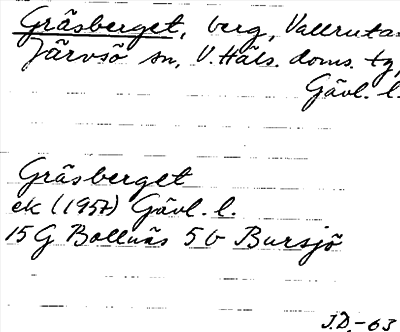 Gräsberget, berg, Vallruta.
Järvsö sn, V. Häls. doms. tg,
Gävl. l.
Gräsberget
ek (1957) Gävl. l.
15 G Bollnäs 5 b Bursjö
J.D. -63